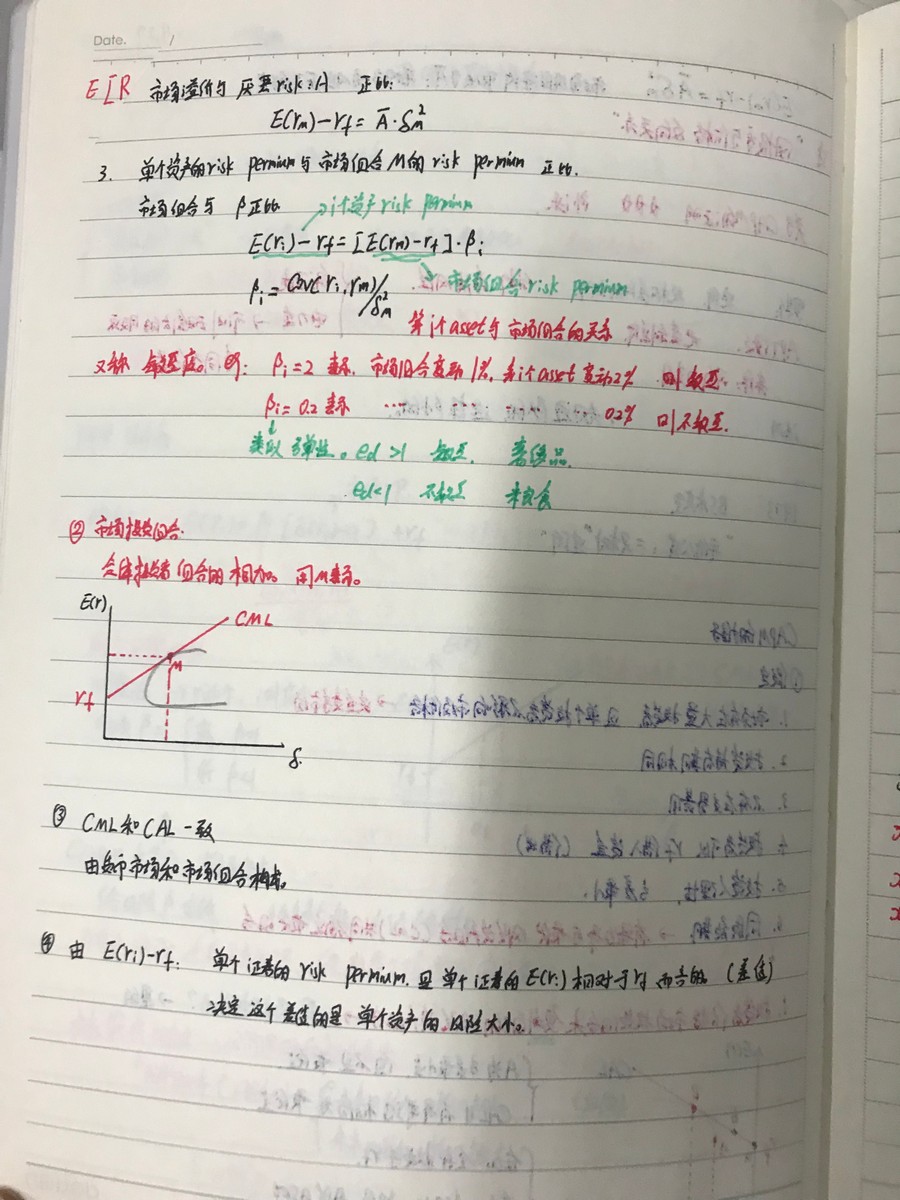 Date. /
E[R 市场溢价与 厌恶risk:A 正比:
E(rm)-rf = Ā·δm²
3. 单个资产的risk permium与市场组合M的risk permium 正比.
市场组合与 β正比 →i个资产risk permium
E(ri)-rf=[E(rm)-rf]·βi
βi = Cov(ri,rm)/δm² →市场组合risk permium
第i个asset与市场组合的关系
又称 敏感度。即: βi=2 表示. 市场组合变动1%, 第i个asset变动2% 叫敏感.
βi=0.2表示 …… …… 0.2% 叫不敏感.
↓
类似 弹性。ed>1 敏感 奢侈品.
ed<1 不敏感 米粮食
② 市场投资组合.
全体投资者组合的相加。用M表示。
E(r)
CML
M
rf
δ.
③ CML和CAL一致
由货币市场和市场组合构成。
④ 由 E(ri)-rf: 单个证券的risk permium. 是单个证券的E(ri)相对于rf而言的 (差值)
决定这个差值的是 单个资产的 风险大小。